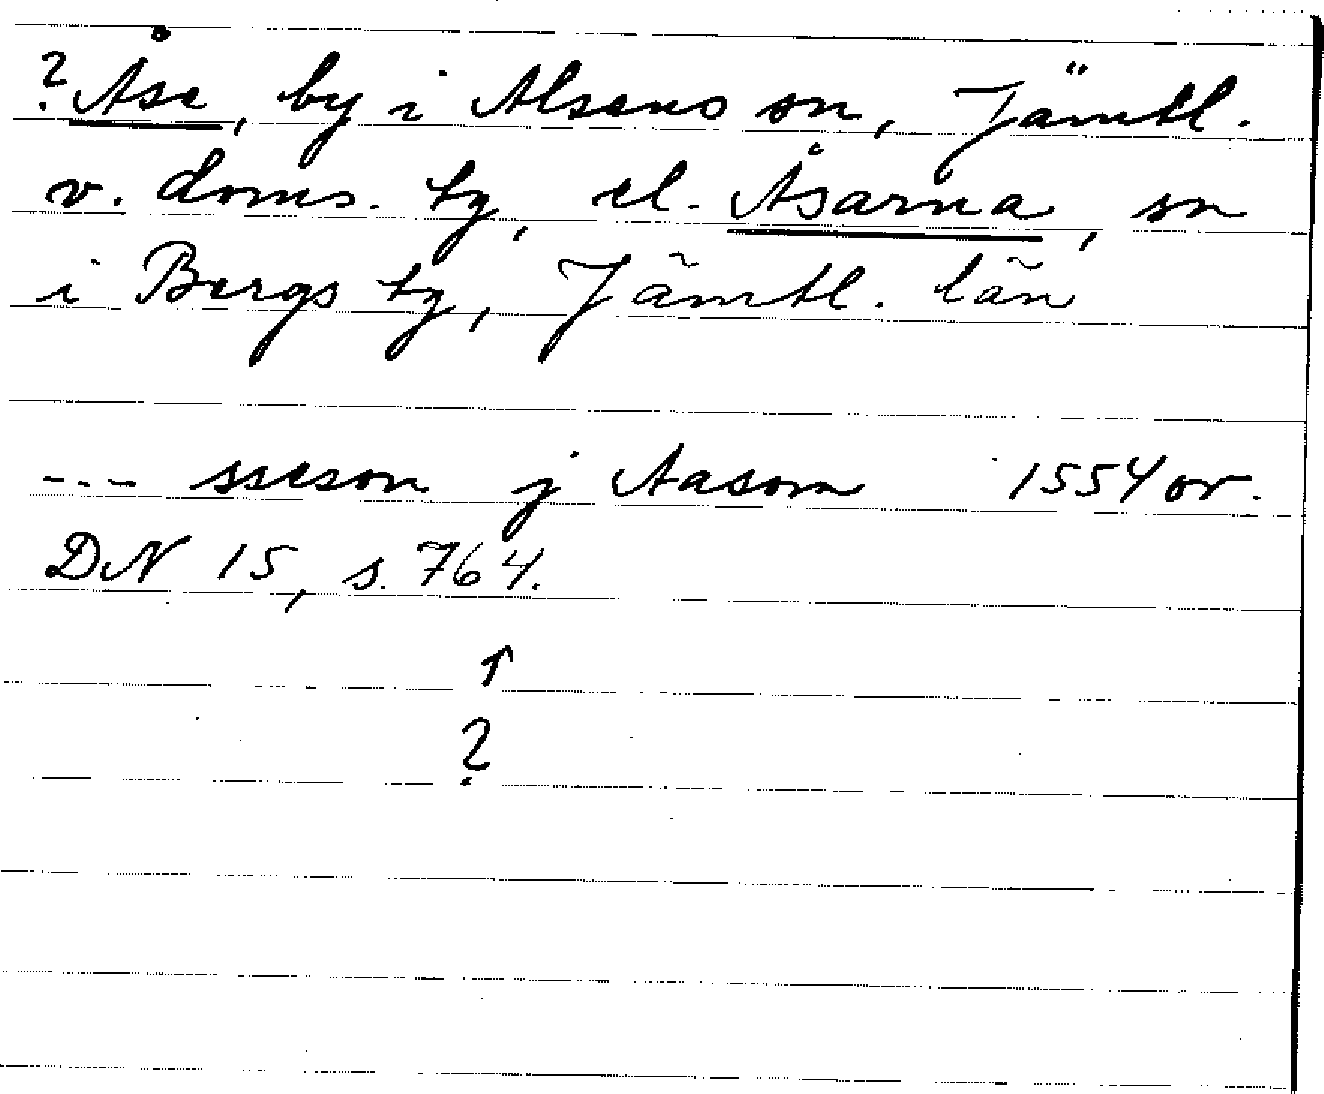 ? Åse, by i Alsens sn, Jämtl.
v. doms. tg, el. Åsarna, sn
i Bergs tg, Jämtl. län
--- sseson j Aasom 1554 or.
DN 15, s. 764.
↑
?